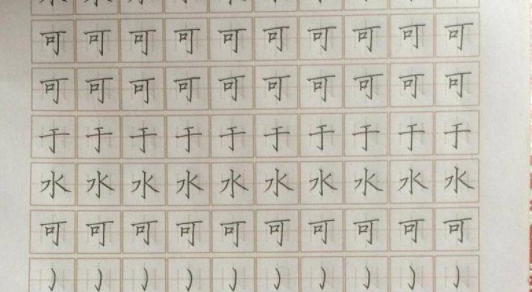 可可可可可可可可可可
可可可可可可可可可可
于于于于于于于于于于
水水水水水水水水水水
可可可可可可可可可可